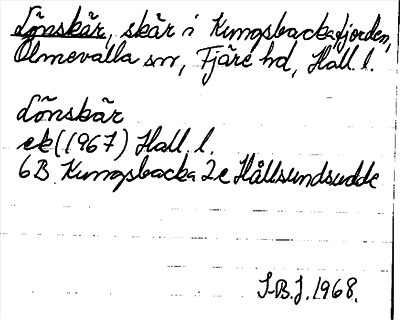 Lönskär, skär i Kungsbackafjorden,
Ölmevalla sn, Fjäre hd, Hall. l.
Lönskär
ek (1967) Hall. l.
6B Kungsbacka 2e Hållsundsudde
S-B.J. 1968.